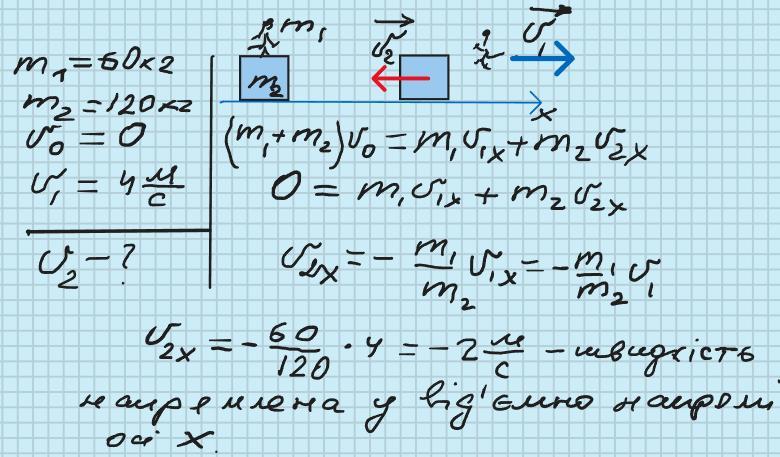 m₁ = 60 кг
m₂ = 120 кг
υ₀ = 0
υ₁ = 4 м/с
υ₂ - ?
m₁
m₂
υ₂
υ₁
x
(m₁ + m₂)υ₀ = m₁υ₁ₓ + m₂υ₂ₓ
0 = m₁υ₁ₓ + m₂υ₂ₓ
υ₂ₓ = - m₁/m₂ υ₁ₓ = - m₁/m₂ υ₁
υ₂ₓ = - 60/120 · 4 = - 2 м/с - швидкість
напрямлена у від'ємно напрям
осі X.